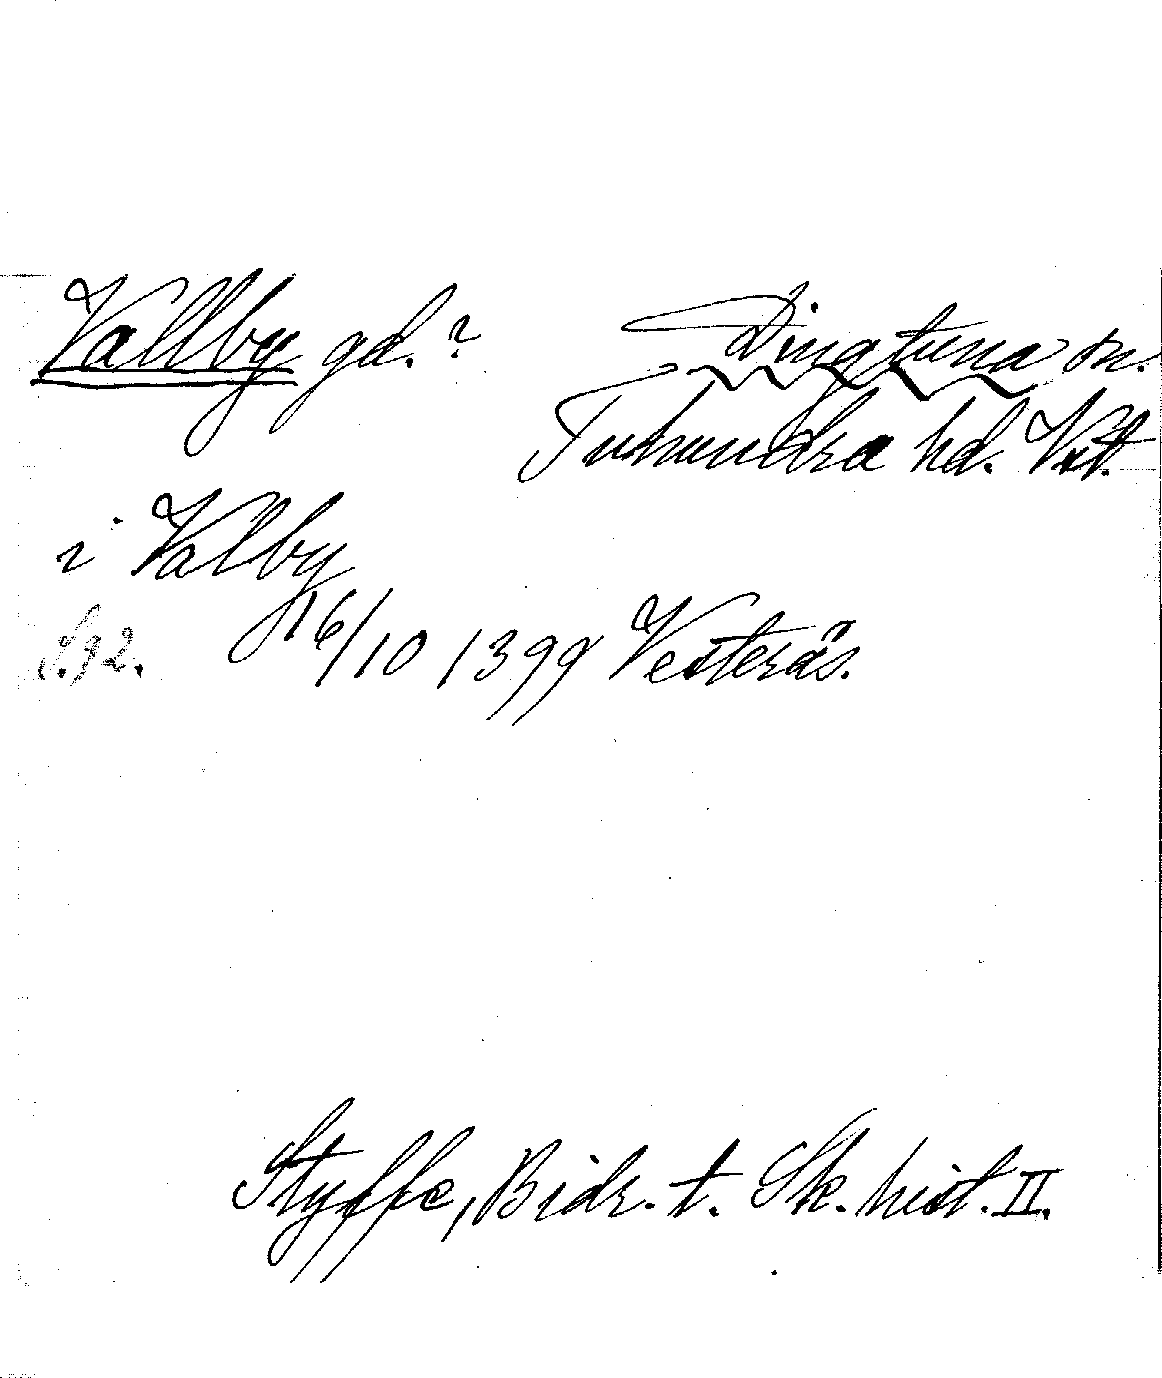 Vallby gd.? Dingtuna sn.
Tuhundra hd. Vstl.
i Valby
S. 92. 16/10 1399 Vesterås.
Styffe, Bidr. t. Sk. hist. II.